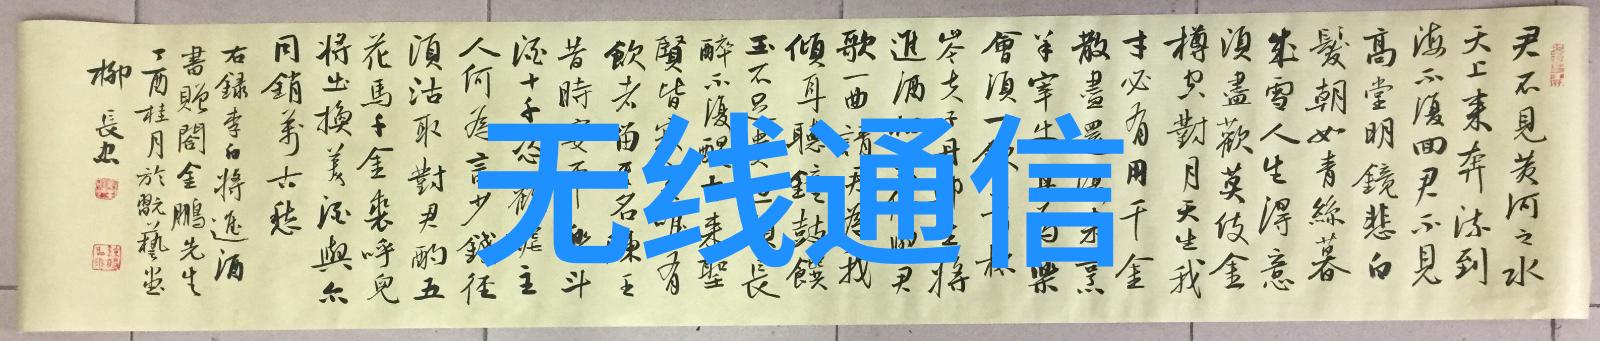 君不見黃河之水
天上來奔流到
海不復回君不見
高堂明鏡悲白
髮朝如青絲暮
成雪人生得意
須盡歡莫使金
樽空對月天生我
才必有用千金
散盡還復來烹
羊宰牛且為樂
會須一飲杯
岑夫子丹邱生將
進酒君
歌一曲請君為我
傾耳聽鐘鼓饌
玉不足貴願長
醉不復醒古來聖
賢皆寂唯有
飲者留其名陳王
昔時宴平樂斗
酒十千恣歡謔主
人何為言少錢徑
須沽取對君酌五
花馬千金裘呼兒
將出換美酒與尔
同銷萬古愁
右錄李白將進酒
書贈閤金鵬先生
丁酉桂月於翫藝堂
柳長忠
无线通信